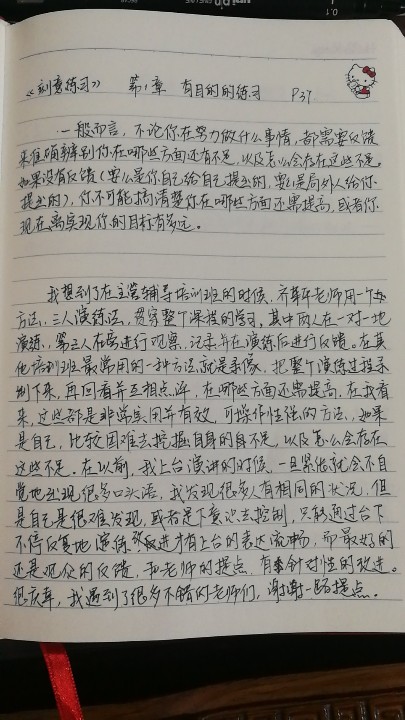 《刻意练习》 第1章 有目的的练习 P37
一般而言，不论你在努力做什么事情，都需要反馈
来准确辨别你在哪些方面还有不足，以及怎么会存在这些不足。
如果没有反馈（要么是你自己给自己提出的，要么是局外人给你
提出的），你不可能搞清楚你在哪些方面还需提高，或者你
现在离实现你的目标有多远。
我想到了在主管辅导培训班的时候，老师用一个
方法，三人演练法，贯穿整个课程的学习，其中两人在一对一地
演练，第三人在旁进行观察，记录并在演练后进行反馈。在其
他培训班最常用的一种方法就是录像，把整个演练过程录
制下来，再回看并互相点评，在哪些方面还需提高。在我看
来，这些都是非常实用并有效，可操作性强的方法。如果
是自己，比较困难去挖掘自身的不足，以及怎么会存在
这些不足。在以前，我上台演讲的时候，一旦紧张就会不自
觉地出现很多口头语，我发现很多人有相同的状况，但
是自己是很难发现，或者是下意识去控制，只能通过台下
不停反复地演练才有上台的表达流畅，而最好的
还是观众的反馈，和老师的提点，有针对性的改进。
很庆幸，我遇到了很多不错的老师们，谢谢一路提点。